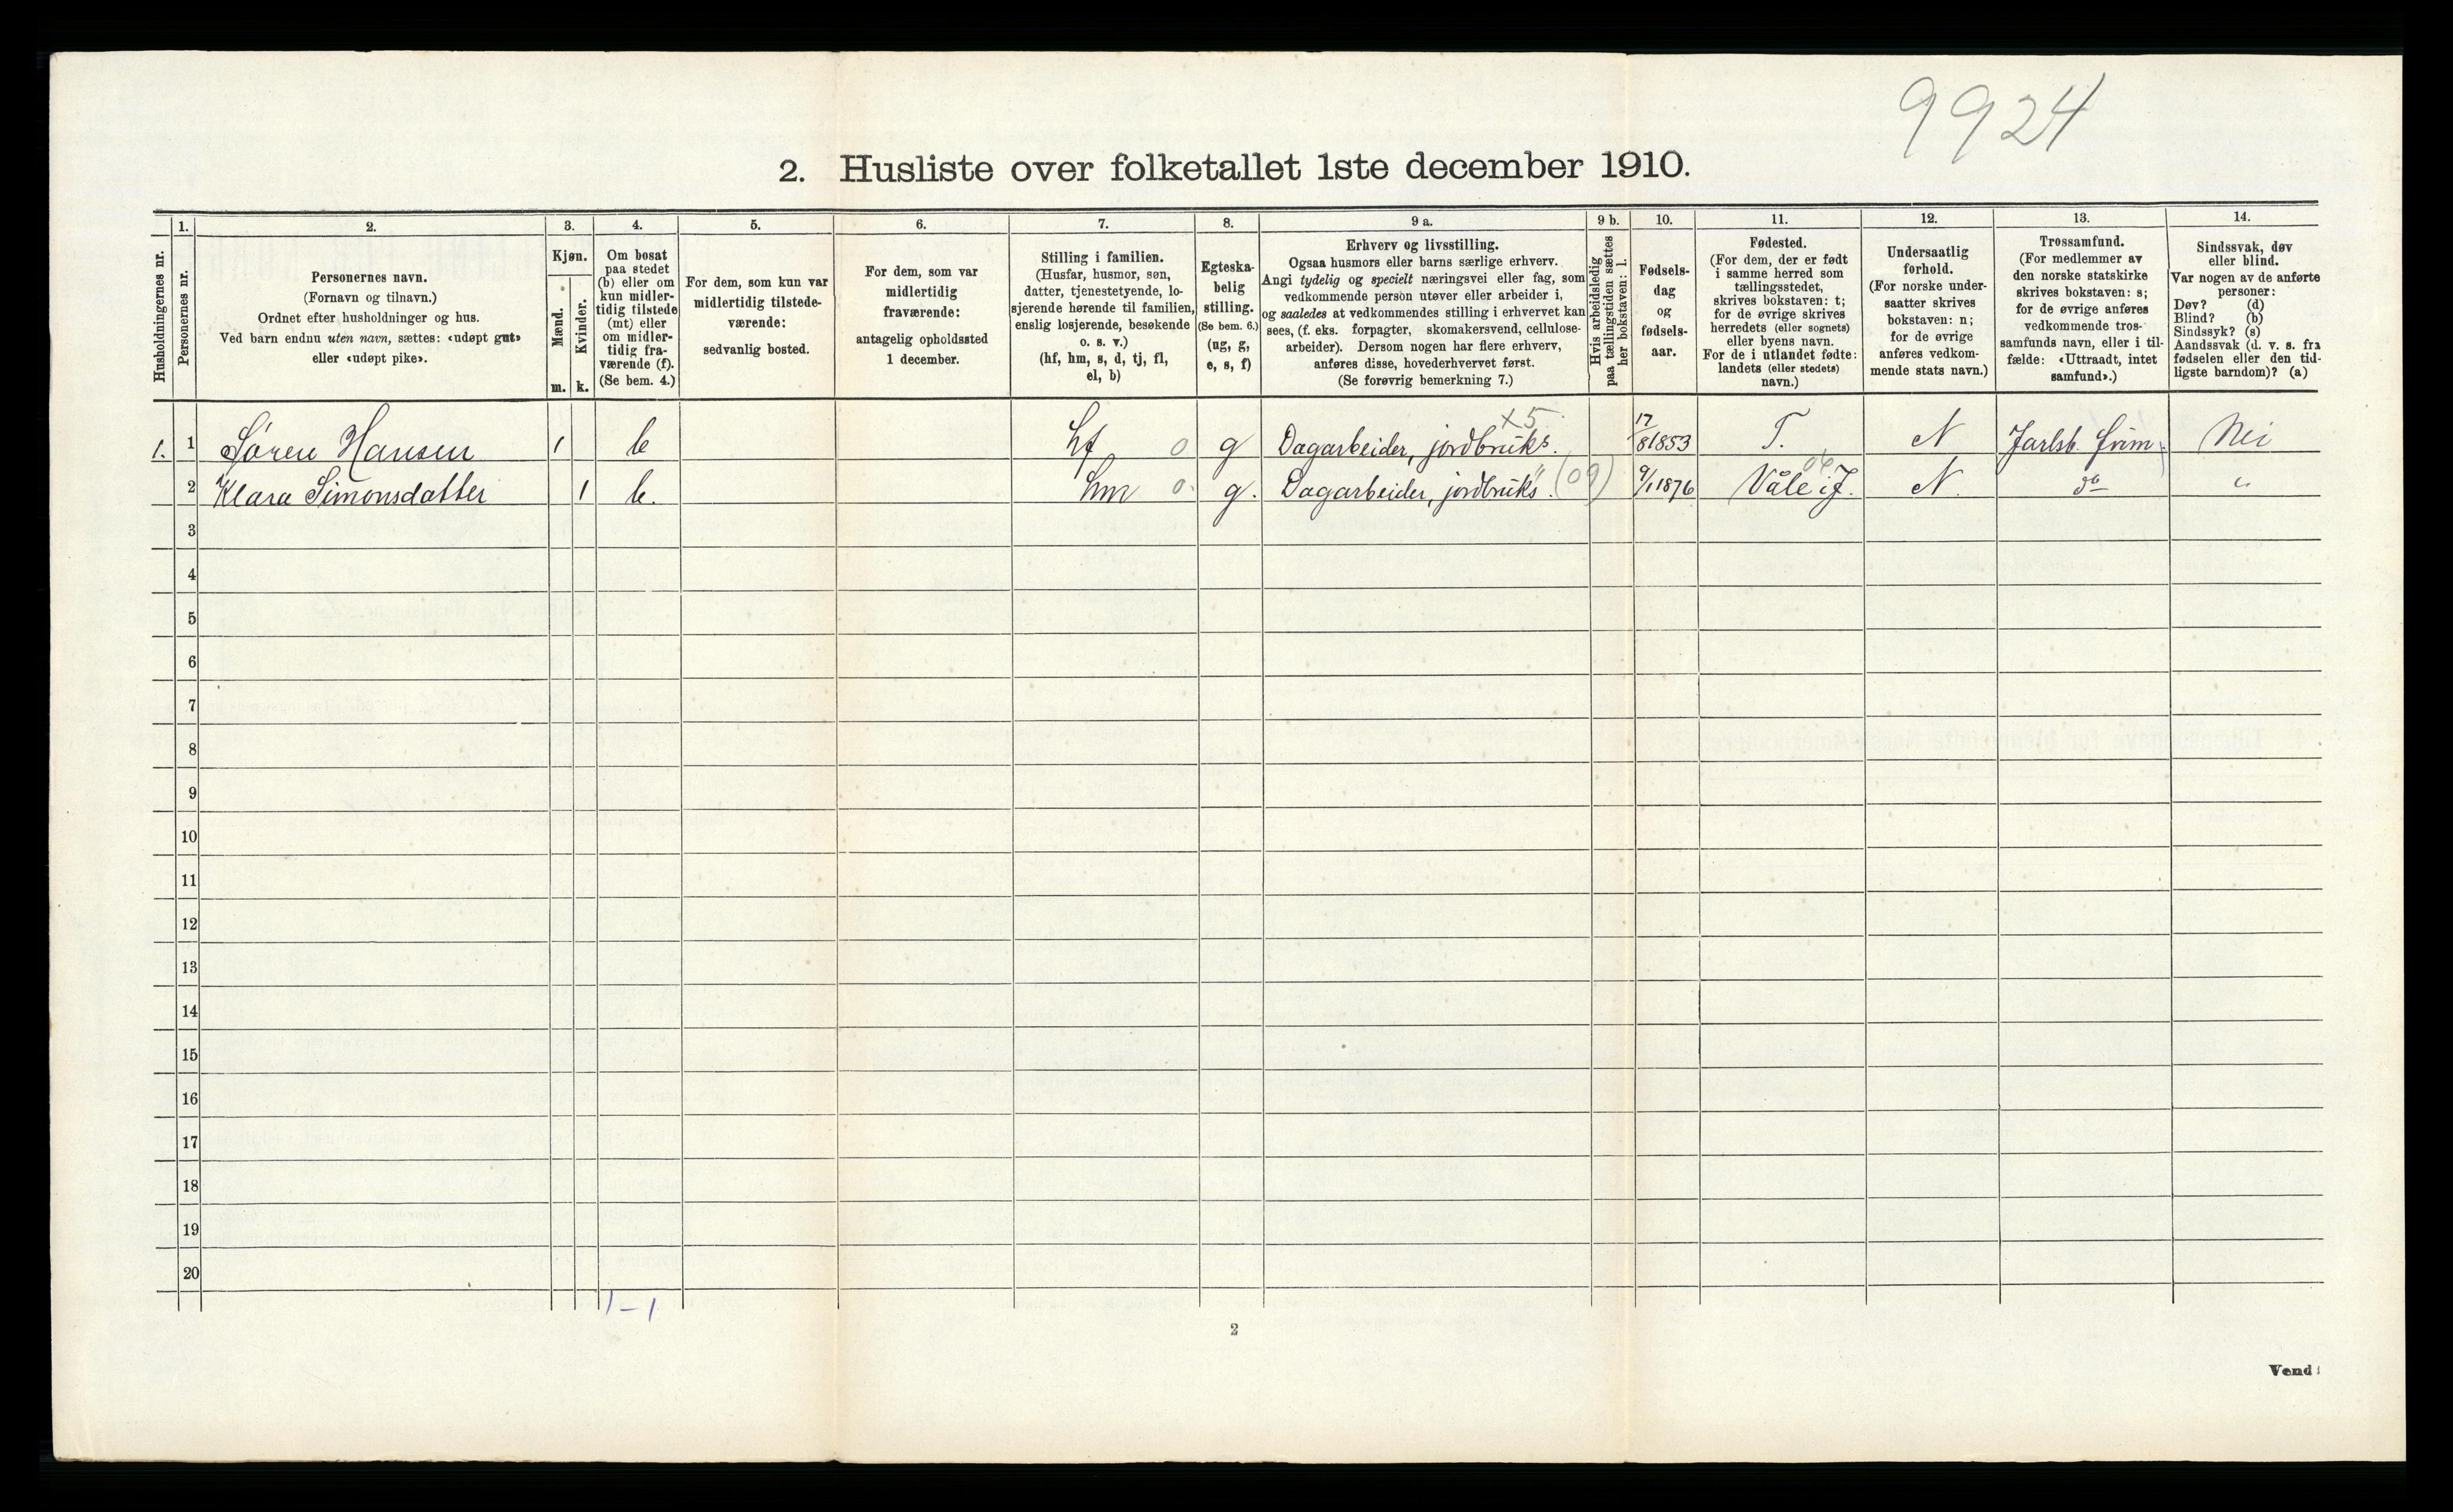 9924
2. Husliste over folketallet 1ste december 1910.
Husholdningernes nr.
1.
Personernes nr.
2.
Personernes navn.
(Fornavn og tilnavn.)
Ordnet efter husholdninger og hus.
Ved barn endnu uten navn, sættes: «udøpt gut»
eller «udøpt pike».
3.
Kjøn.
Mænd.
Kvinder.
m. k.
4.
Om bosat
paa stedet
(b) eller om
kun midler-
tidig tilstede
(mt) eller
om midler-
tidig fra-
værende (f).
(Se bem. 4.)
5.
For dem, som kun var
midlertidig tilstede-
værende:
sedvanlig bosted.
6.
For dem, som var
midlertidig
fraværende:
antagelig opholdssted
1 december.
7.
Stilling i familien.
(Husfar, husmor, søn,
datter, tjenestetyende, lo-
sjerende hørende til familien,
enslig losjerende, besøkende
o. s. v.)
(hf, hm, s, d, tj, fl,
el, b)
8.
Egteska-
belig
stilling.
(Se bem. 6.)
(ug, g,
e, s, f)
9 a.
Erhverv og livsstilling.
Ogsaa husmors eller barns særlige erhverv.
Angi tydelig og specielt næringsvei eller fag, som
vedkommende person utøver eller arbeider i,
og saaledes at vedkommendes stilling i erhvervet kan
sees, (f. eks. forpagter, skomakersvend, cellulose-
arbeider). Dersom nogen har flere erhverv,
anføres disse, hovederhvervet først.
(Se forøvrig bemerkning 7.)
9 b.
Hvis arbeidsledig
paa tællingstiden sættes
her bokstaven: l.
10.
Fødsels-
dag
og
fødsels-
aar.
11.
Fødested.
(For dem, der er født
i samme herred som
tællingsstedet,
skrives bokstaven: t;
for de øvrige skrives
herredets (eller sognets)
eller byens navn.
For de i utlandet fødte:
landets (eller stedets)
navn.)
12.
Undersaatlig
forhold.
(For norske under-
saatter skrives
bokstaven: n;
for de øvrige
anføres vedkom-
mende stats navn.)
13.
Trossamfund.
(For medlemmer av
den norske statskirke
skrives bokstaven: s;
for de øvrige anføres
vedkommende tros-
samfunds navn, eller i til-
fælde: «Uttraadt, intet
samfund».)
14.
Sindssvak, døv
eller blind.
Var nogen av de anførte
personer:
Døv? (d)
Blind? (b)
Sindssyk? (s)
Aandssvak (d. v. s. fra
fødselen eller den tid-
ligste barndom)? (a)
1. 1 Søren Hansen 1 b hf 0 g Dagarbeider, jordbruks. x5 17/8 1853 T. N Jarlsb. frim. Nei
2 Klara Simonsdatter 1 b. hm 0 g. Dagarbeider, jordbruks". (09) 9/1 1876 Våle i J. 06 N. do "
3
4
5
6
7
8
9
10
11
12
13
14
15
16
17
18
19
20
1-1
2
Vend